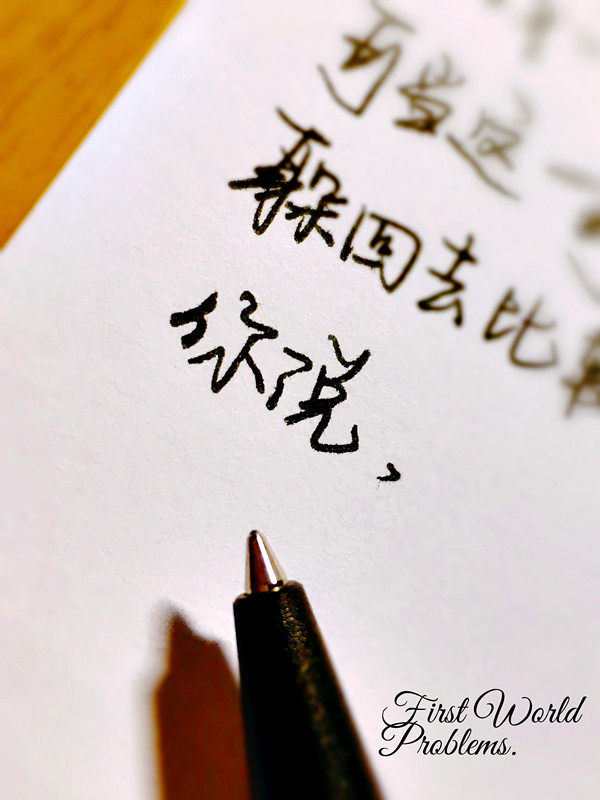 可当这
躲回去比较
你说，
First World
Problems.